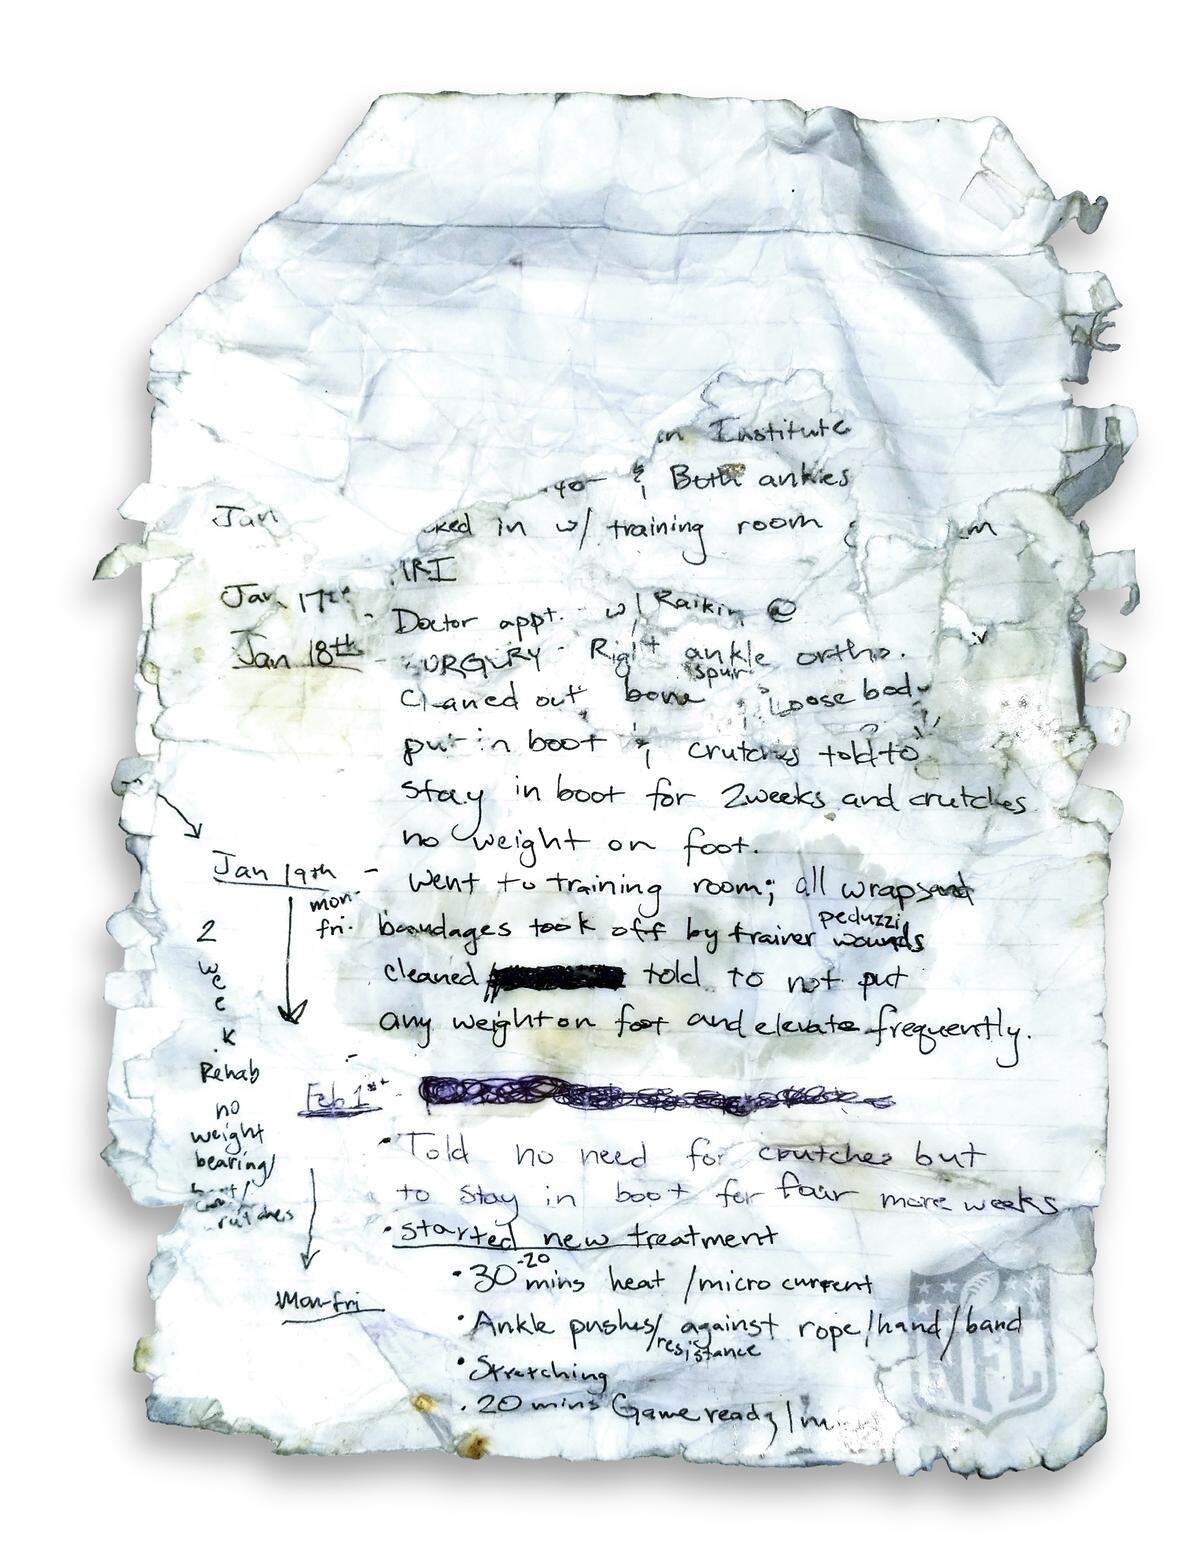 in Institute
& Both ankles
Jan
ked in w/ training room
MRI
Jan 17th - Doctor appt. w/ Raikin @
Jan 18th - SURGERY - Right ankle ortho.
cleaned out bone spur loose body
put in boot & crutches told to
stay in boot for 2 weeks and crutches
no weight on foot.
Jan 19th - went to training room; all wraps and
mon-
fri. bandages took off by trainer peduzzi wounds
cleaned told to not put
any weight on foot and elevate frequently.
2
week
Rehab
no
weight
bearing/
boot/
crutches
Feb 1st -
• Told no need for crutches but
to stay in boot for four more weeks
• started new treatment
• 30-20 mins heat /micro current
Mon-fri
• Ankle pushes/ against rope/hand/band
resistance
• Stretching
• 20 mins Game ready/
NFL